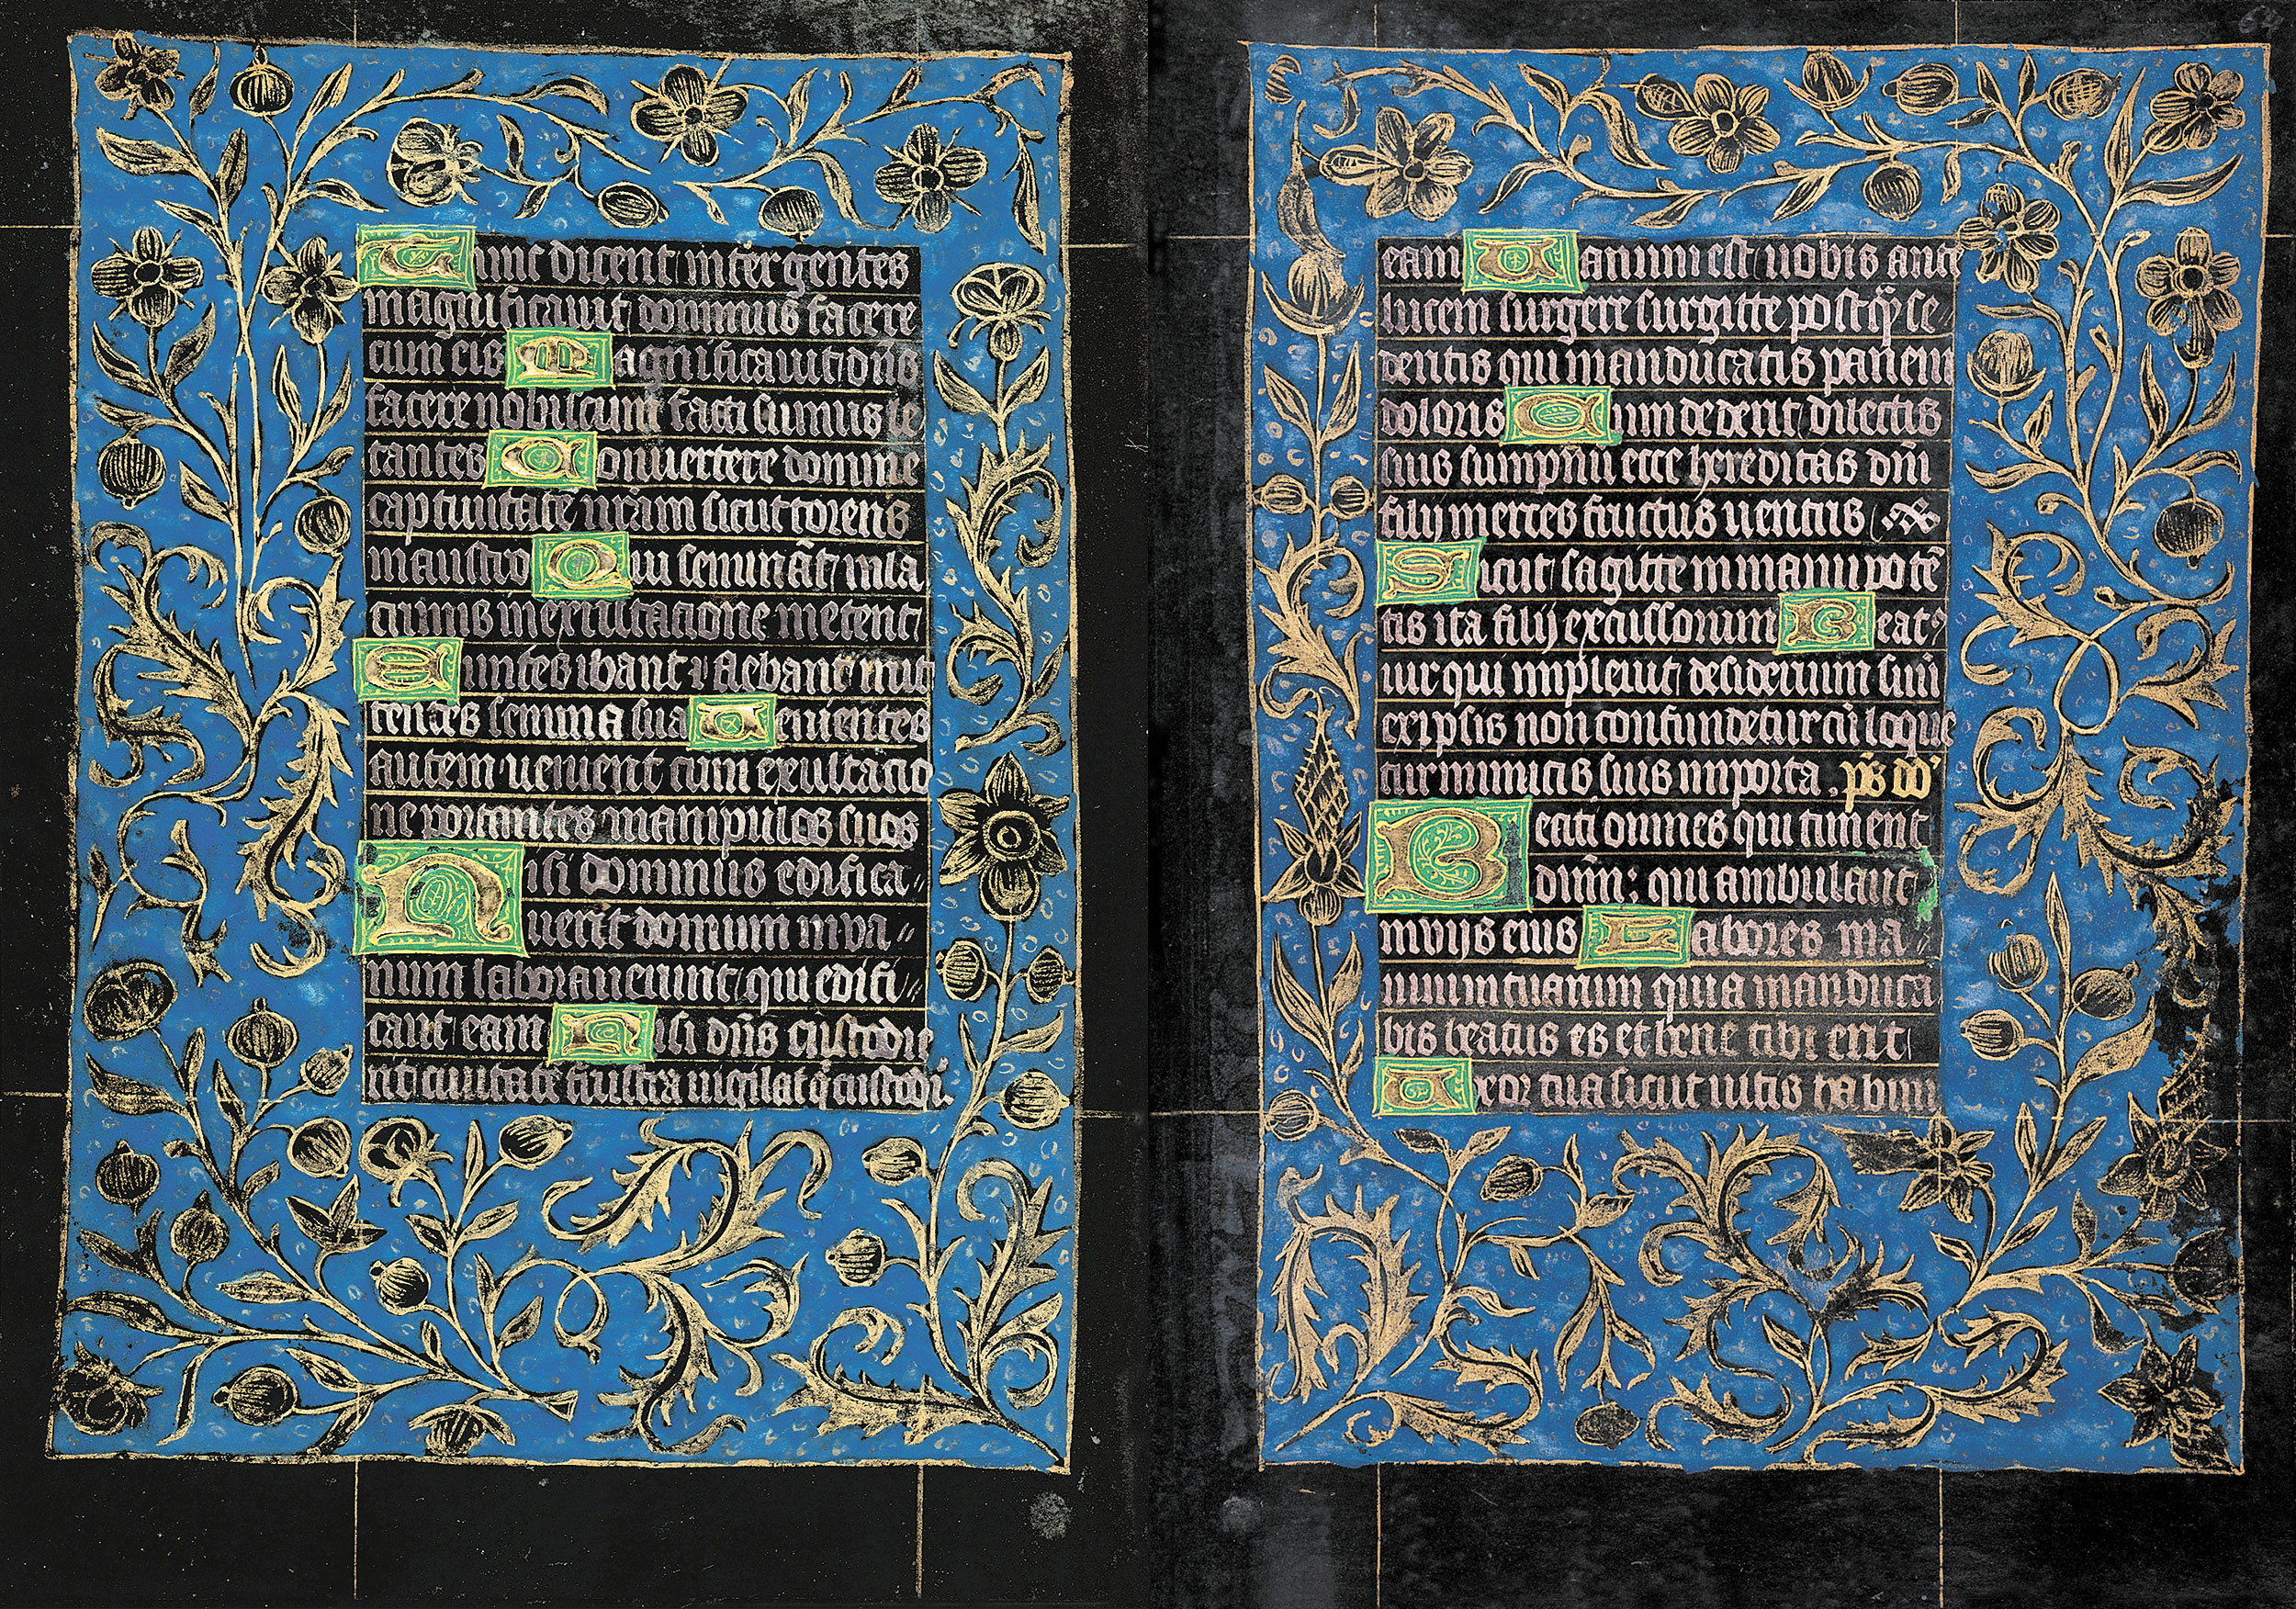 Tunc dicent inter gentes
magnificauit dominus facere
cum eis Magnificauit dn̄s
facere nobiscum facti sumus le
tantes Conuertere domine
captiuitatē nr̄am sicut torrens
in austro Qui semināt in la
crimis in exultacione metent
Euntes ibant ⁊ flebant mit
tentes semina sua Uenientes
autem uenient cum exultacio
ne portantes manipulos suos
Nisi dominus edifica
uerit domum in va
num laborauerunt qui edifi
cant eam Nisi dn̄s custodie
rit ciuitatē frustra uigilat q̄ custodi
64
eam Uanum est uobis ante
lucem surgere surgitte postq̄ se
dentis qui manducatis panem
doloris Cum dederit dilectis
suis sumpnū ecce hereditas dn̄i
filij merces fructus uentris
Sicut sagitte in manu potē
tis ita filij excussorum Beatꝰ
uir qui impleuit desiderium suū
ex ipsis non confundetur cū loque
tur inimicis suis in porta. ps̄ dd'
Beati omnes qui timent
dn̄m: qui ambulant
in vijs eius Labores ma
nuum tuarum quia manduca
bis beatus es et bene tibi erit
Uxor tua sicut uitis habun